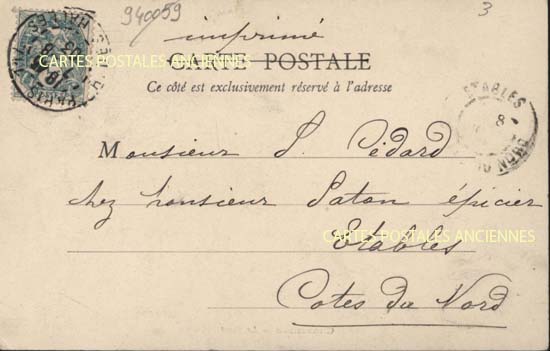 940059
3
imprimé
CARTE POSTALE
Ce côté est exclusivement réservé à l'adresse
ETABLES
8
Monsieur S. Pédard
chez monsieur Paton épicier
Etables
Côtes du Nord
CARTES POSTALES ANCIENNES
CARTES POSTALES ANCIENNES